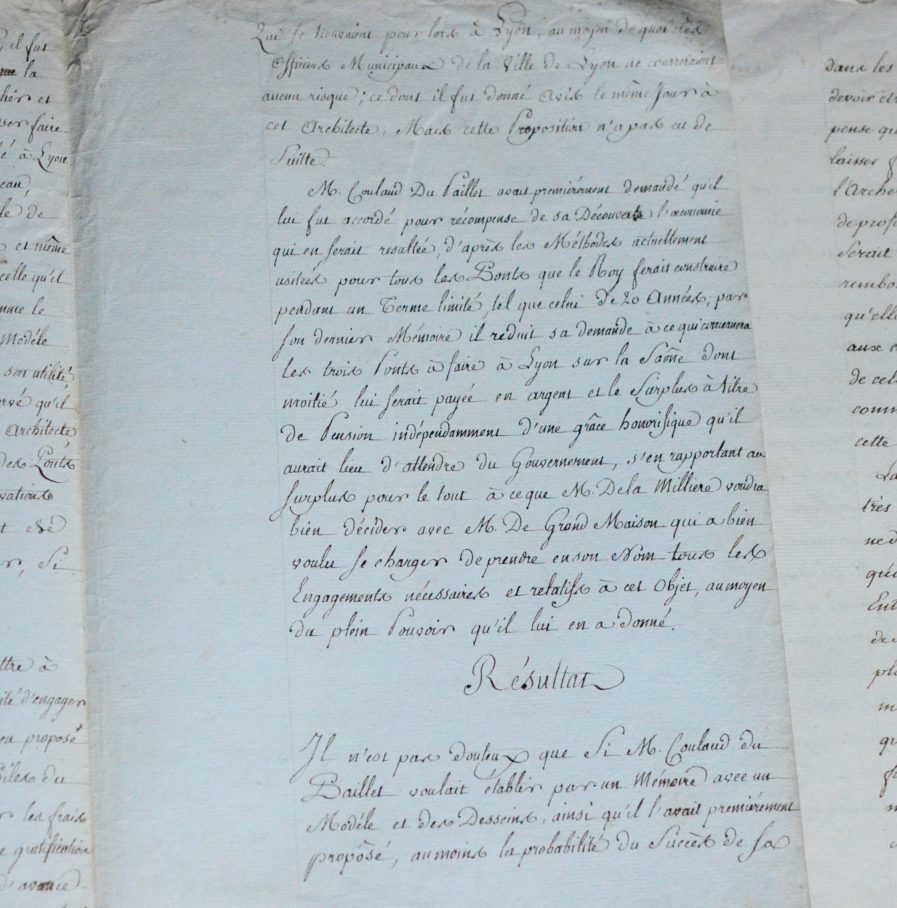 il fut
la
et
faire
à Lyon
de
et même
celle qu'il
le
Modéle
son utilité,
qu'il
Architecte
des Ponts
Si
à
d'engager
proposé
du
les frais
gratification
d'avance
Qui se trouvaient pour lors à Lyon, au moyen de quoi les
Officiers Municipaux de la Ville de Lyon ne couraient
aucun risque; ce dont il fut donné avis le même Jour à
cet Architecte, Mais cette Proposition n'a pas eu de
Suitte.
M. Coulaud Du Paillet avait premiérement demandé qu'il
lui fut accordé pour récompense de sa Découverte l'œconomie
qui en serait resultée, d'après les Méthodes actuellement
usitées pour tous les Ponts que le Roy ferait construire
pendant un Terme limité, tel que celui de 20 Années; par
son dernier Mémoire il réduit sa demande à ce qui concernera
les trois Ponts à faire à Lyon sur la Saône dont
moitié lui serait payée en argent et le Surplus à titre
de Pension indépendamment d'une grâce honorifique qu'il
aurait lieu d'attendre du Gouvernement, s'en rapportant au
surplus pour le tout à ce que M. De la Milliere voudra
bien décider avec M. De Grand Maison qui a bien
voulu se charger de prendre en son Nom tous les
Engagements nécessaires et relatifs à cet Objet, au moyen
du plein Pouvoir qu'il lui en a donné.
Résultat
Il n'est pas douteux que Si M. Coulaud du
Paillet voulait établir par un Mémoire avec un
Modéle et des Desseins, ainsi qu'il l'avait premiérement
proposé, au moins la probabilité du Succès de sa
dans les
devoir
pense
laisser
de
Serait
qu'elle
aux
de
cette
très